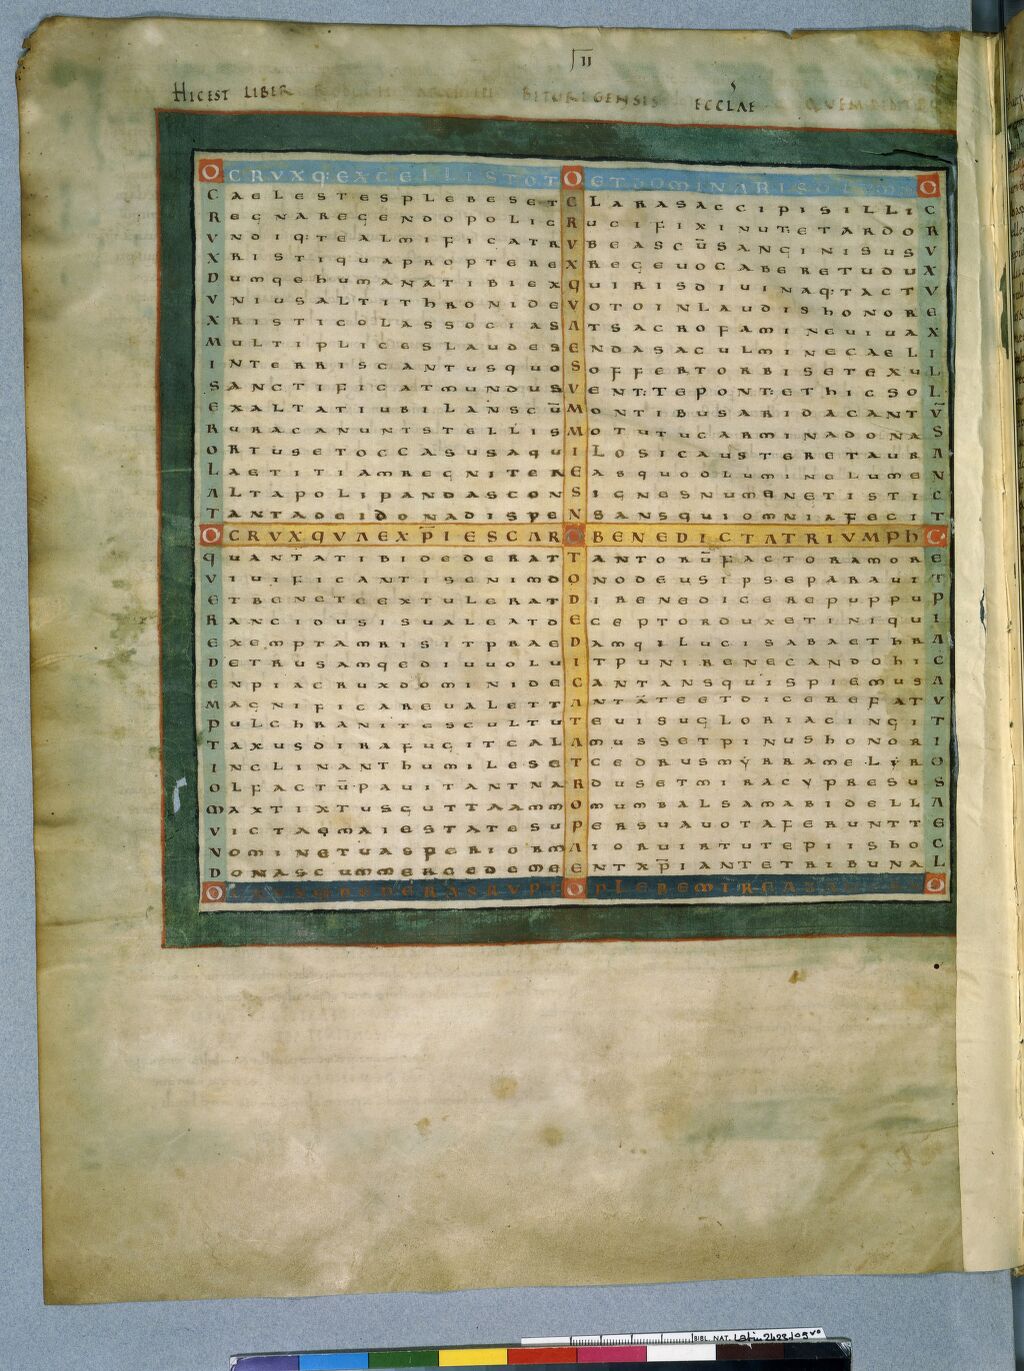 II
HIC EST LIBER BITURIGENSIS ECCLAE QUEM
OCRVXQ:EXCELLISTOTOETDOMINARISOLYMPO
CAELESTESPLEBESETCLARASACCIPISILLIC
REGNAREGENDOPOLICRUCIFIXINUTETARDOR
VNDIQ:TEALMIFICATRVBEASCŪSANGINISUSV
XRISTIQUAPROPTEREXREGEUOCABERETUDUX
DUMQEHUMANATIBIEXQUIRISDIUINAQ:TACTV
VNIUSALTITHRONIDEVOTOINLAUDISHONORE
XRISTICOLASSOCIASATSACROFAMINEUIUAX
MULTIPLICESLAUDESENDASACULMINECAELI
INTERRISCANTUSQUOSOFFERTORBISETEXUL
SANCTIFICATMUNDUSVENT:TEPONT:ETHICSOL
EXALTATIUBILANSCŪMONTIBUSARIDACANTV̄
RURACANUNTSTELLISMOTUTUCARMINADONAS
ORTUSETOCCASUSAQUILOSICAUSTERETAURA
LAETITIAMREGNITEREASQUODLUMINELUMEN
ALTAPOLIPANDASCONSIGNESNUMENETISTIC
TANTADEIDONADISPENSANSQUIOMNIAFECIT
OCRVXQVAEXP̄IESCAROBENEDICTATRIVMPHO
QUANTATIBIDEDERATTANTORŪFACTORAMORE
VIUIFICANTISENIMDONODEUSIPSEPARAUIT
ETBENETEEXTULERATDIRENEDICEREPUPPUP
RANCIOUSISUALEATDECEPTORDUXETINIQUI
EXEMPTAMRISITPRAEDAMQILUCISABAETHRA
DETRUSAMQEDIUUOLUITPUNIRENECANDOHIC
ENPIACRUXDOMINIDECANTANSQUISPIEMUSA
MAGNIFICAREUALETTANTĀTEETDICEREFATV
PULCHRANITESCULTUTEUISUGLORIACINGIT
TAXUSDIRAFUGITCALAMUSSETPINUSHONORI
INCLINANTHUMILESETCEDRUSMYRRAMELYRO
OLFACTŪPAUITANTNARDUSETMIRACYPRESUS
MAXTIXTUSGUTTAAMMOMUMBALSAMABIDELLA
VICTAQMAIESTATESUPERSUAUOTAFERUNTTE
NOMINETUASPERIORMAIORUIRTUTEPIISHOC
DONASCUMMERCEDEMEENTXP̄IANTETRIBUNAL
OCRVXQEDEDERASRVPTOPLEBEMIRE
BIBL. NAT. Latin 2423 fo 9 vo